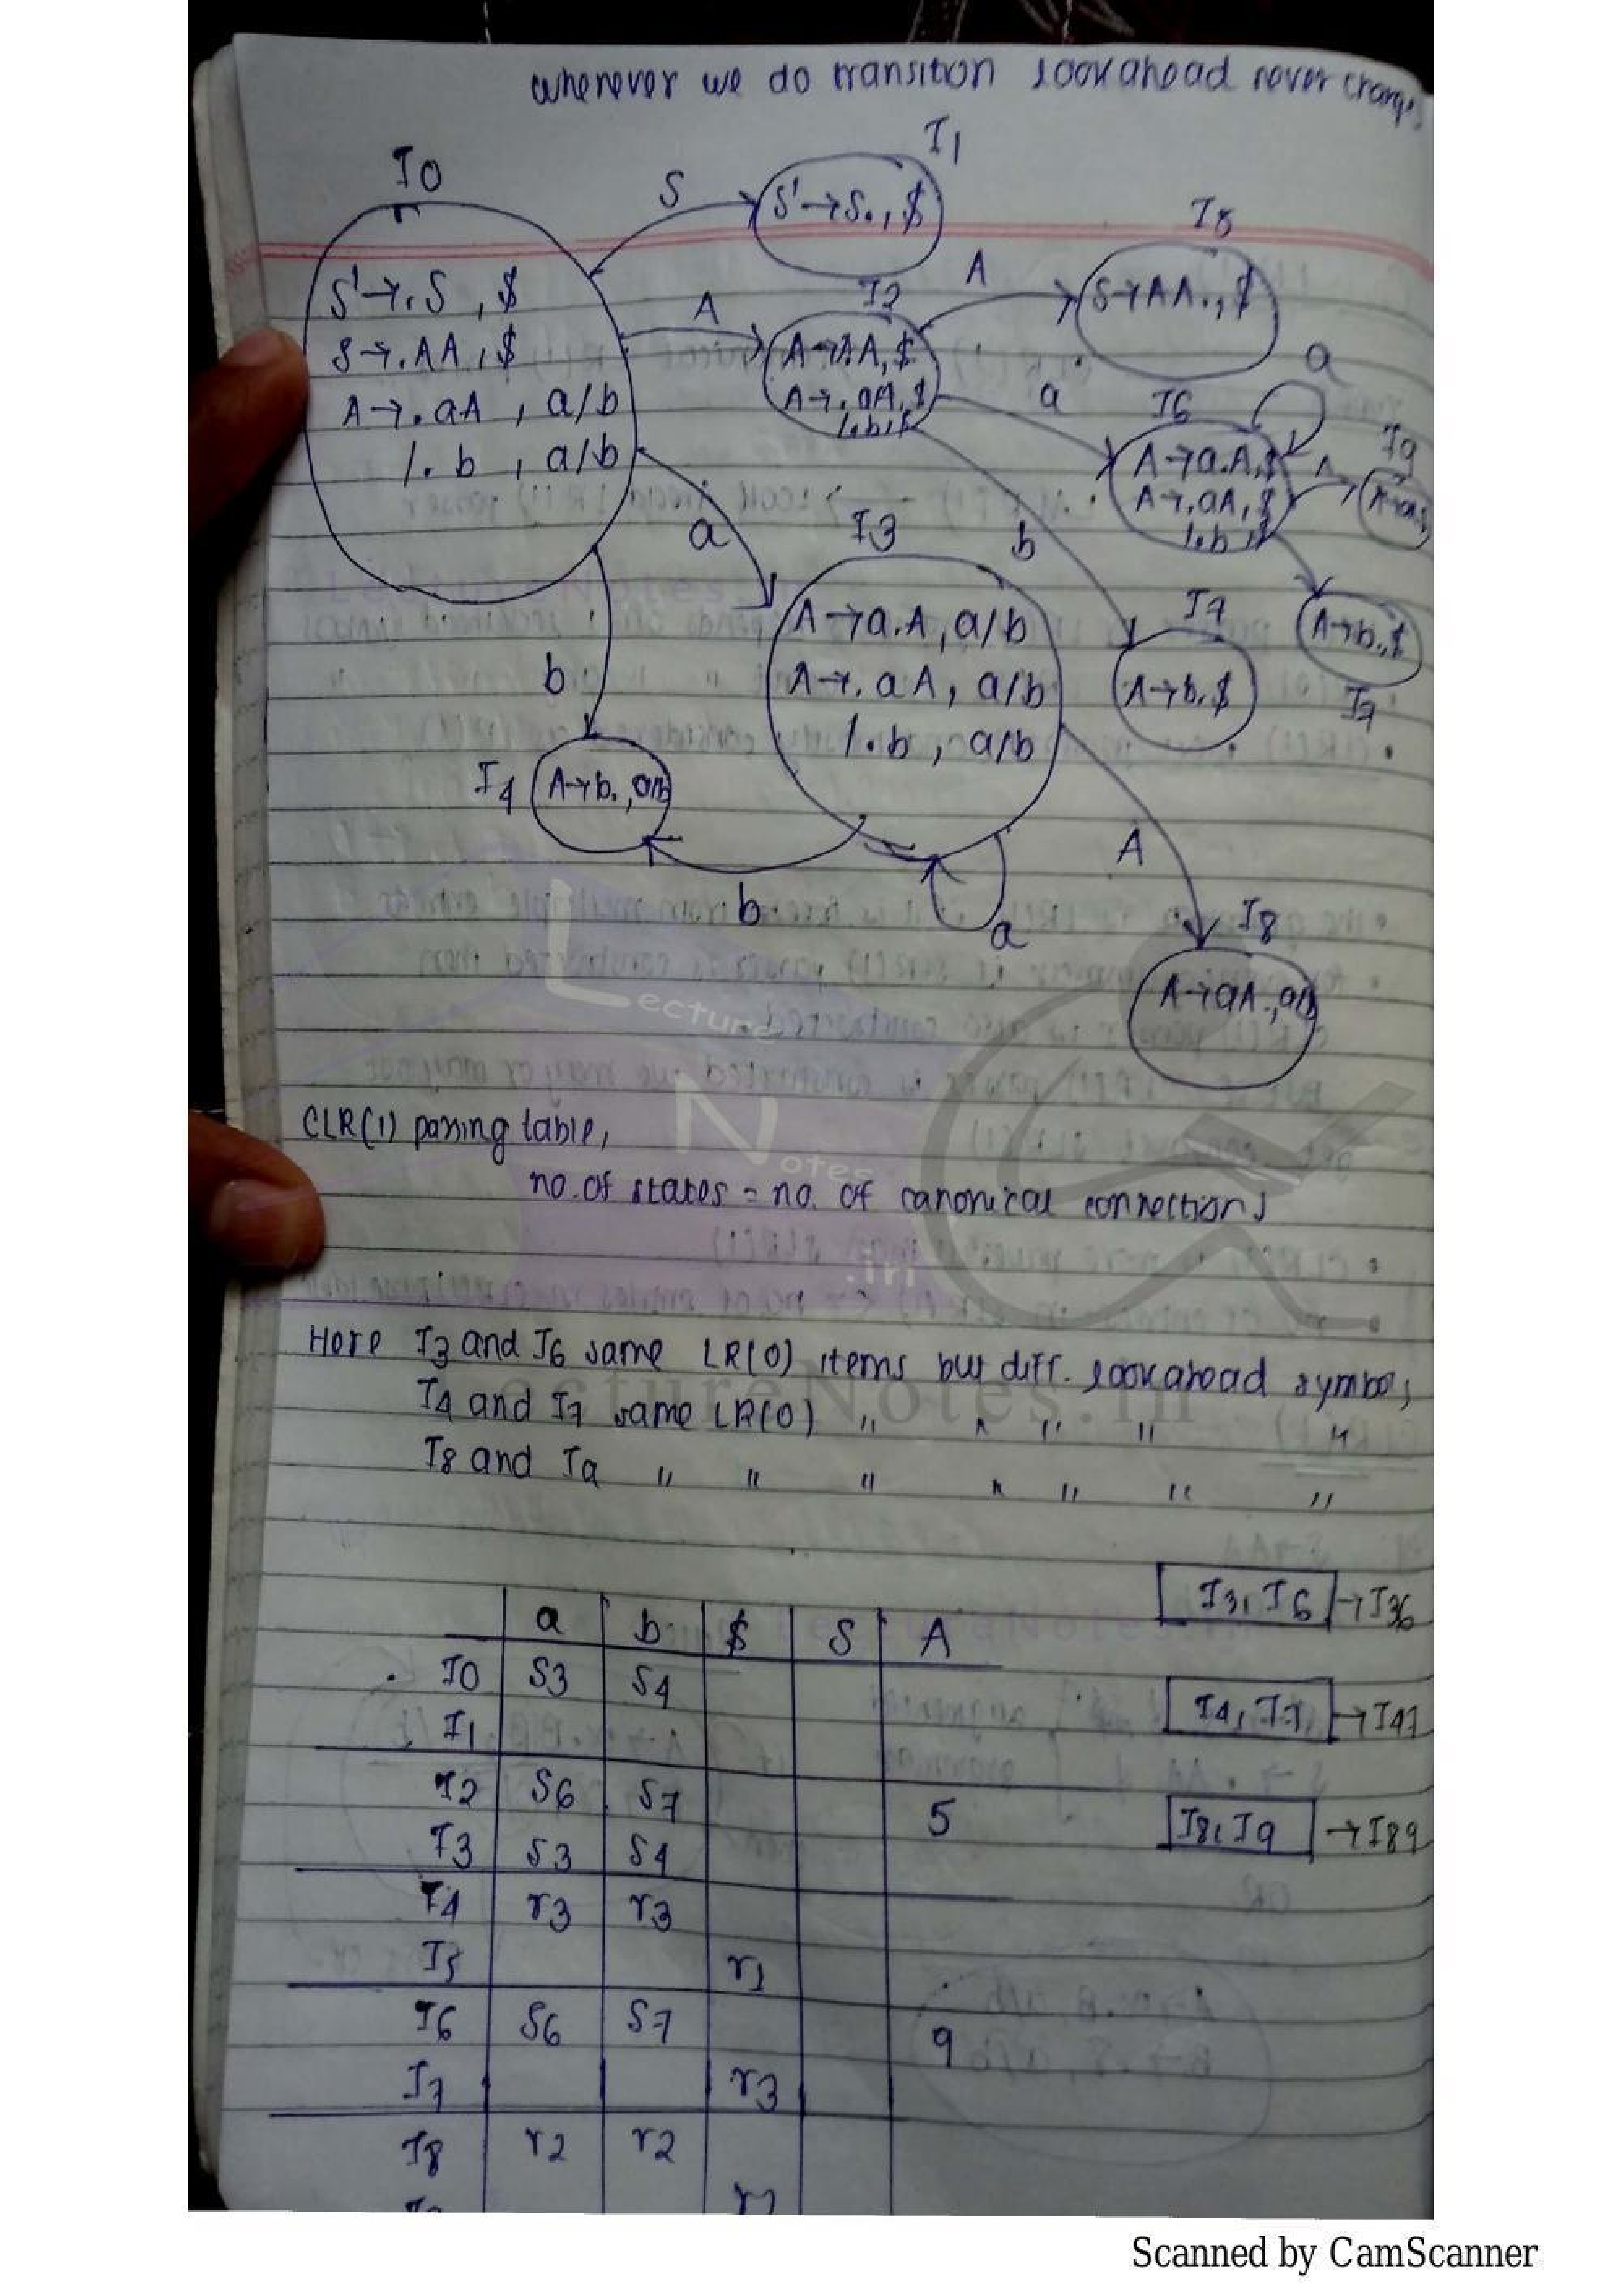 whenever we do transition lookahead never changes
I0
S
I1
S'→S., $
I5
S'→.S , $
S→.AA , $
A→.aA , a/b
/.b , a/b
A
I2
A→A.A, $
A→.aA, $
/.b, $
A
S→AA., $
a
a
I6
A→a.A, $
A→.aA, $
/.b, $
A
I9
a
I3
b
A→a.A, a/b
A→.aA, a/b
/.b , a/b
I7
A→b. $
A→b., $
I7
b
I4
A→b., a/b
b
a
A
I8
A→aA., a/b
CLR(1) parsing table,
no. of states = no. of canonical connections
Here I3 and I6 same LR(0) items but diff. lookahead symbols
I4 and I7 same LR(0) " " " " "
I8 and I9 " " " " " " "
a b $ S A
I0 S3 S4
I1
I2 S6 S7 5
I3 S3 S4
I4 r3 r3
I5 r1
I6 S6 S7 9
I7 r3
I8 r2 r2
r2
I3, I6 → I36
I4, I7 → I47
I8, I9 → I89
Lecture
Notes
.in
LectureNotes.in
Scanned by CamScanner